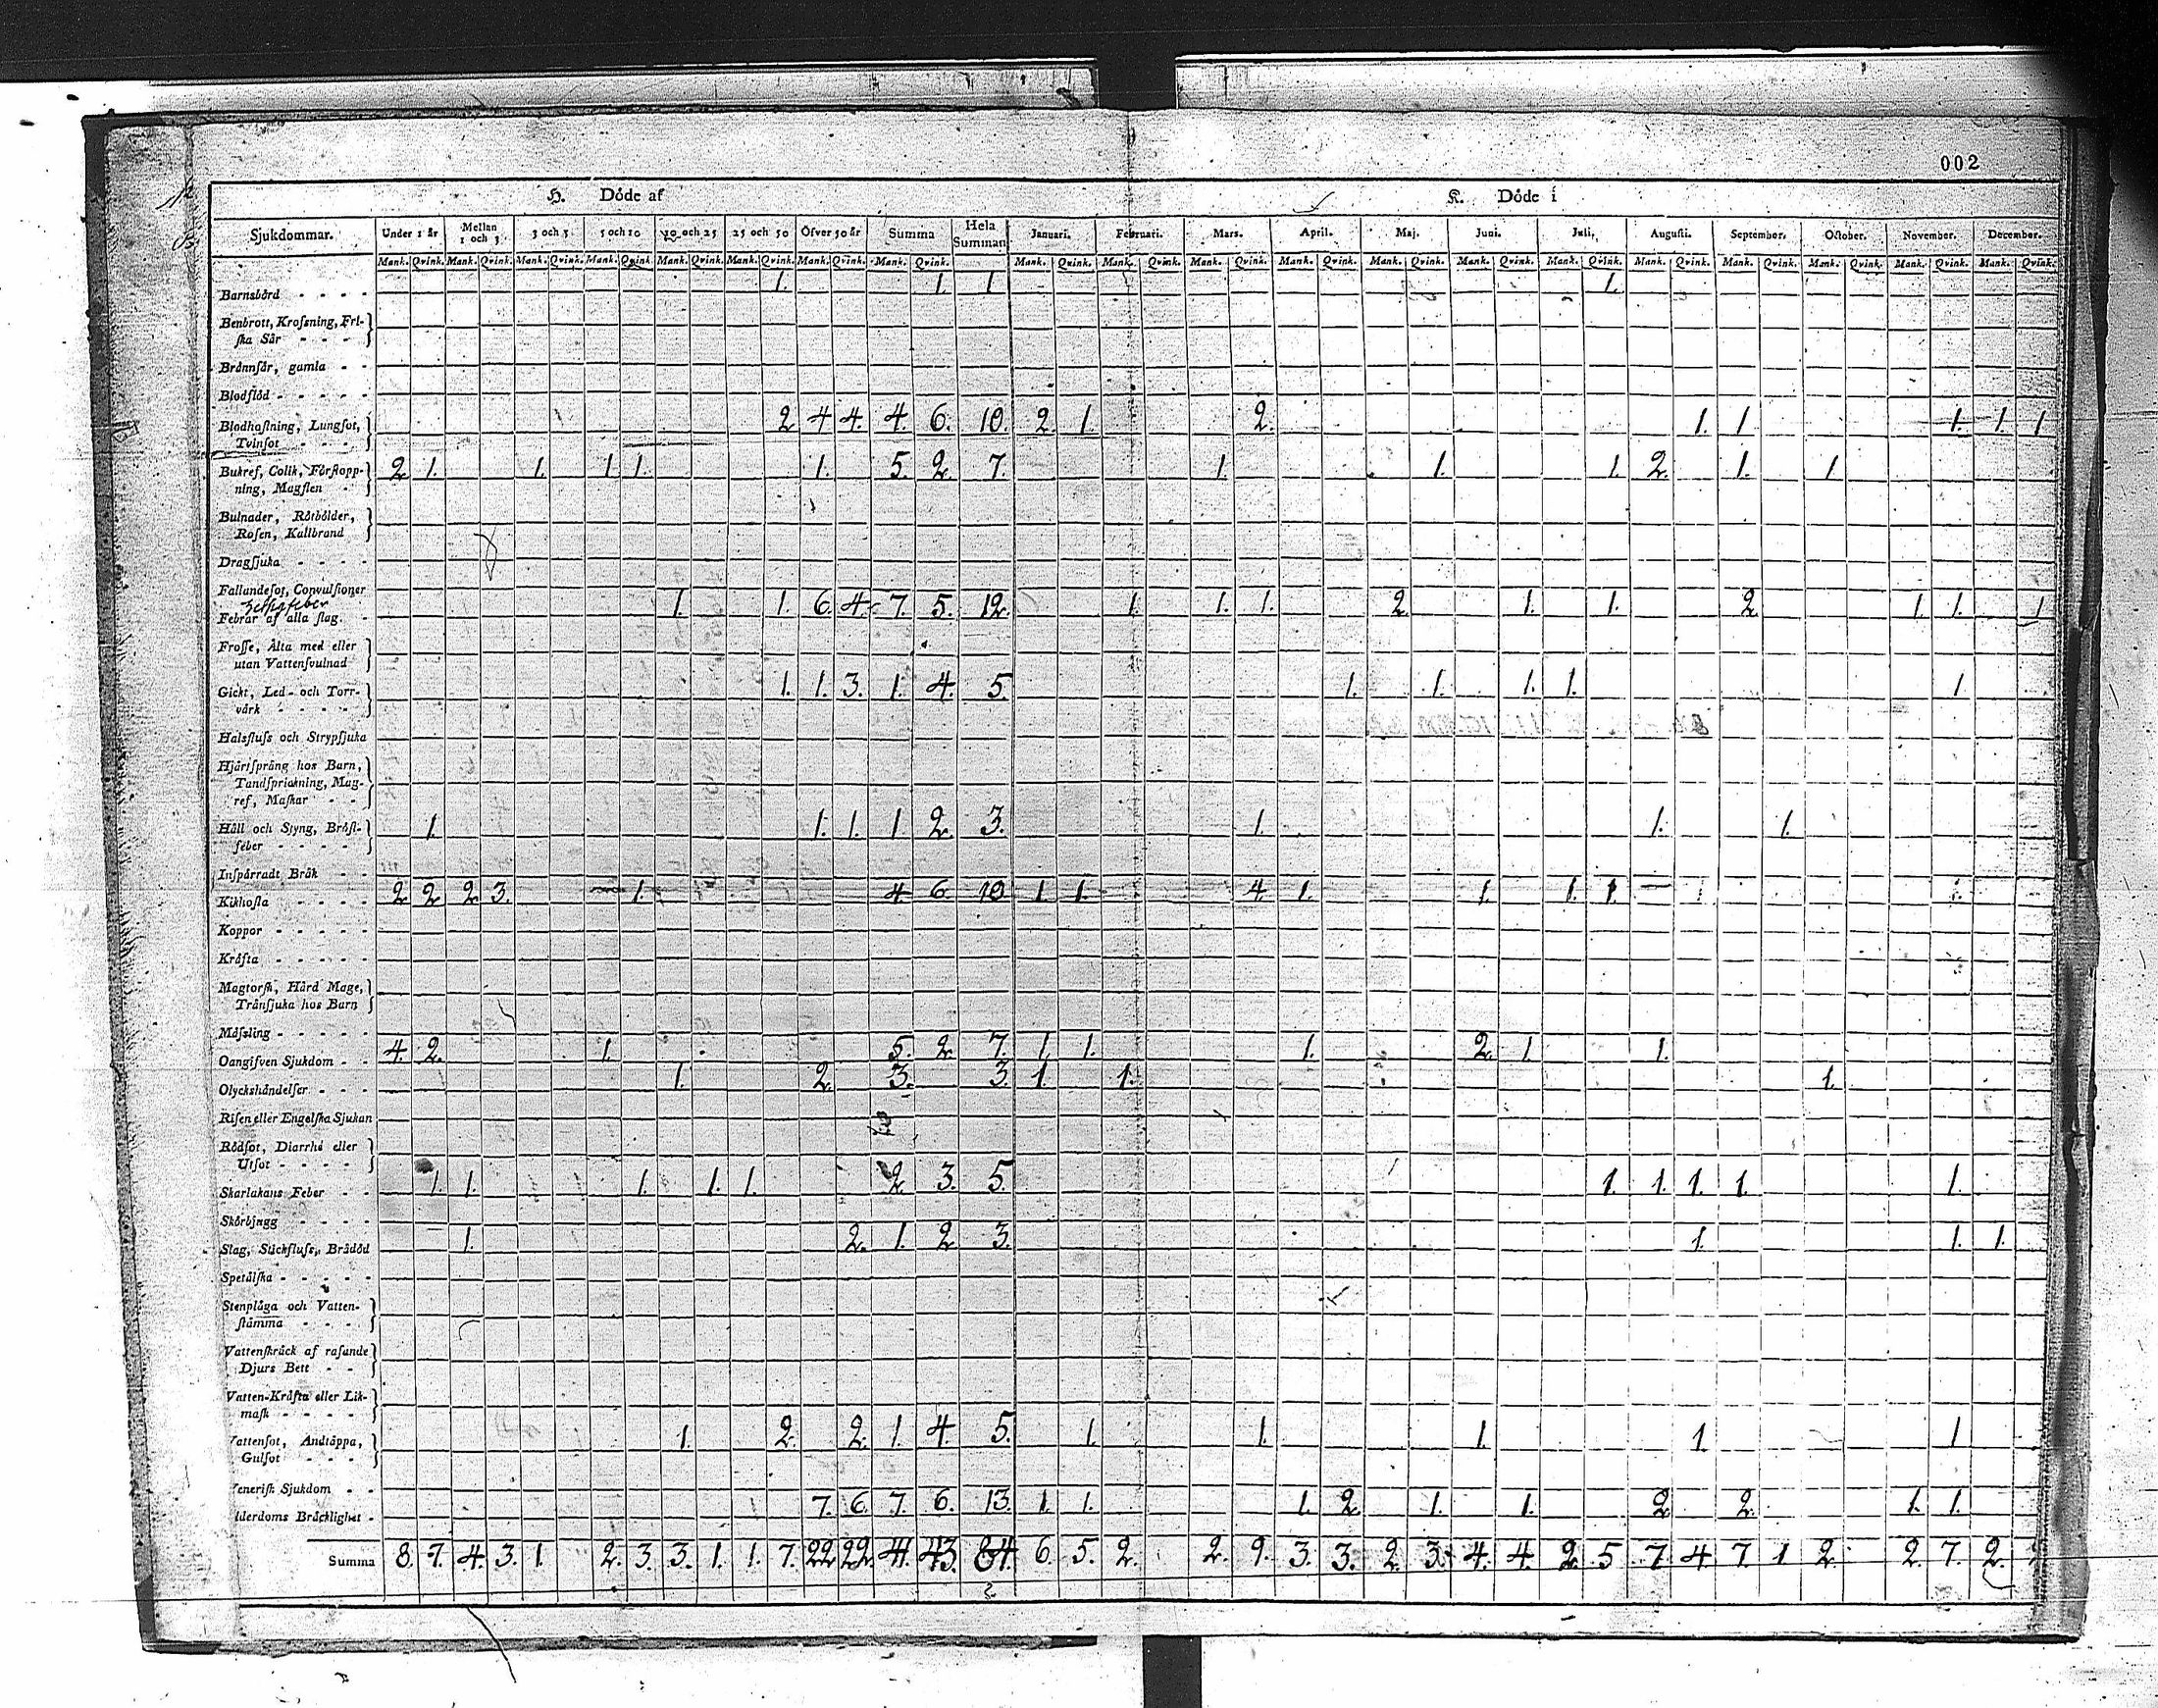 002
H. Döde af K. Döde i
Sjukdommar. Under 1 år Mellan 1 och 3. 3 och 5 5 och 10 10 och 25 25 och 50 Öfver 50 år Summa Hela Summan Januari. Februari. Mars. April. Maj. Juni. Juli. Augusti. September. October. November. December.
Mank. Qvink. Mank. Qvink. Mank. Qvink. Mank. Qvink. Mank. Qvink. Mank. Qvink. Mank. Qvink. Mank. Qvink. Mank. Qvink. Mank. Qvink. Mank. Qvink. Mank. Qvink. Mank. Qvink. Mank. Qvink. Mank. Qvink. Mank. Qvink. Mank. Qvink. Mank. Qvink. Mank. Qvink. Mank. Qvink.
Barnsbörd 1. 1. 1 1.
Benbrott, Krossning, Fri-
ska Sår
Brännsår, gamla
Blodflöd
Blodhostning, Lungsot, 2 4 4. 4. 6. 10. 2. 1. 2. 1. 1. 1. 1. 1
Tvinsot
Bukref, Colik, Förstopp- 2 1. 1. 1 1. 1. 5. 2. 7. 1. 1. 1. 2. 1. 1
ning, Magsten
Bulnader, Rötbölder,
Rosen, Kallbrand
Dragsjuka
Fallandesot, Convulsioner
Febrar af alla slag. 1. 1. 6. 4. 7. 5. 12. 1. 1. 1. 2. 1. 1. 2. 1. 1. 1
Frosse, Älta med eller
utan Vattensvulnad
Gickt, Led- och Torr- 1. 1. 3. 1. 4. 5. 1. 1. 1. 1. 1
värk
Halsfluss och Strypsjuka
Hjärtsprång hos Barn,
Tandsprickning, Mag-
ref, Maskar
Håll och Styng, Bröst- 1. 1. 1. 1 2. 3. 1. 1. 1.
feber
Inspärradt Bråk
Kikhosta 2 2 2 3. 1. 4 6 10 1. 1. 4. 1. 1. 1. 1. 1 1.
Koppor
Kräfta
Magtorsk, Hård Mage,
Trånsjuka hos Barn
Mässling
Oangifven Sjukdom 4. 2. 1. 5. 2. 7. 1. 1. 1. 2. 1. 1.
Olyckshändelser 1. 2. 3. 3. 1. 1. 1.
Risen eller Engelska Sjukan
Rödsot, Diarrhé eller
Utsot
Skarlakans Feber 1. 1. 1. 1. 1. 2. 3. 5. 1. 1. 1. 1. 1.
Skörbjugg
Slag, Stickfluss, Bråddöd 1. 2. 1. 2 3. 1. 1. 1.
Spetälska
Stenplåga och Vatten-
stämma
Vattenskräck af rasande
Djurs Bett
Vatten-Kräfta eller Lik-
mask
attensot, Andtäppa, 1. 2. 2. 1. 4. 5. 1. 1. 1. 1 1
Gulsot
enerisk Sjukdom
lderdoms Bräcklighet 7. 6. 7. 6. 13. 1. 1. 1. 2. 1. 1. 2. 2. 1. 1.
Summa 8. 7. 4. 3. 1. 2. 3. 3. 1. 1. 7. 22 22. 41. 43. 84. 6. 5. 2. 2. 9. 3. 3. 2. 3. 4. 4. 2. 5 7. 4 7. 1 2. 2. 7. 2.